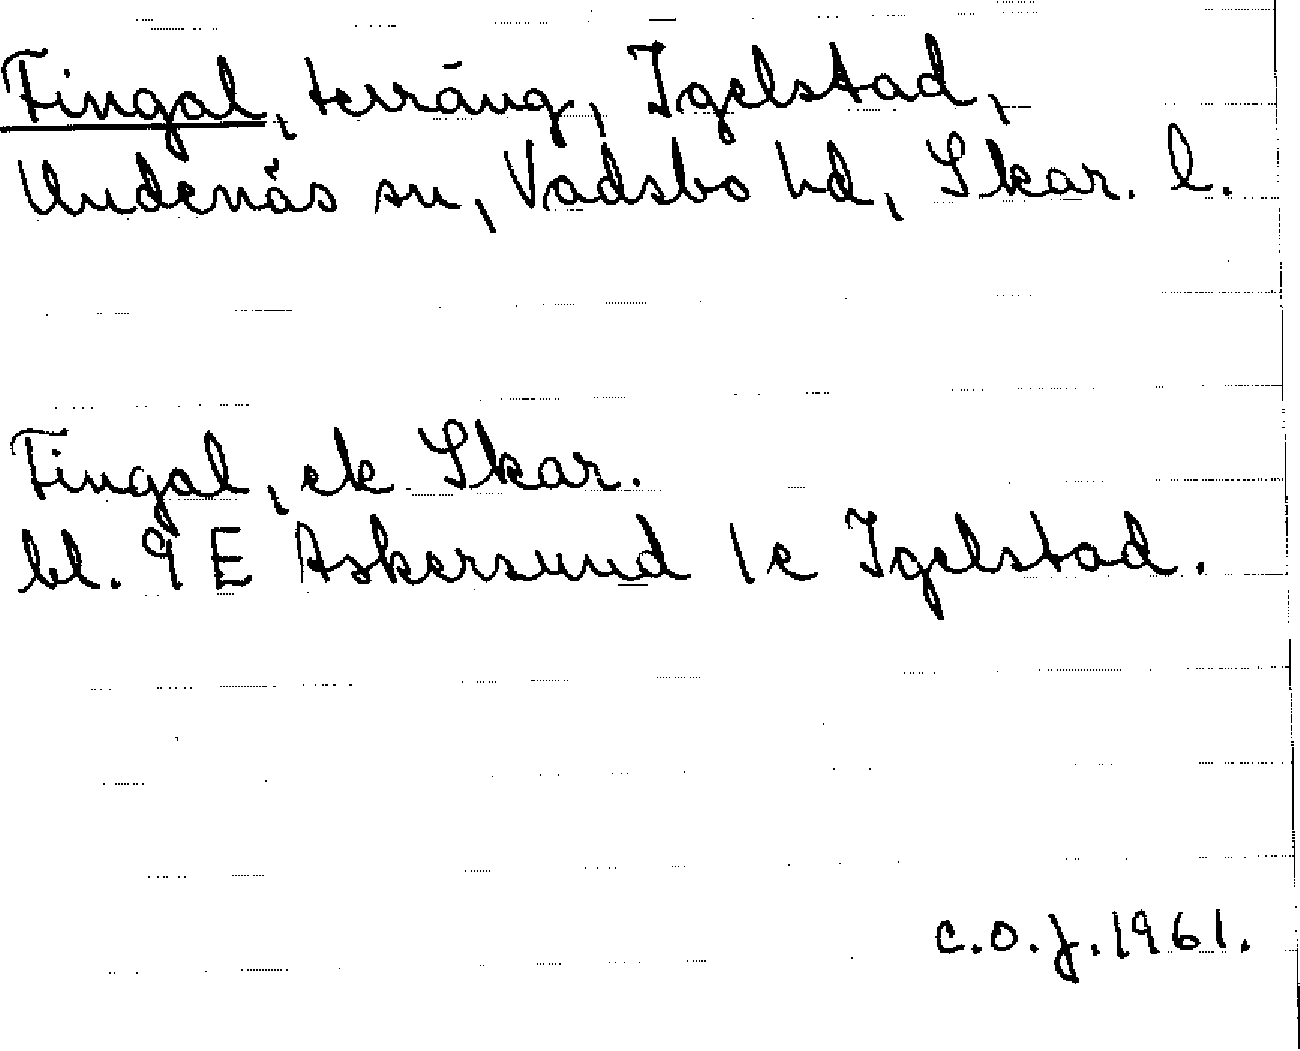 Fingal, terräng, Igelstad,
Undenäs sn, Vadsbo hd, Skar. l.
Fingal, ek Skar.
bl. 9 E Askersund 1c Igelstad.
C.O.J. 1961.